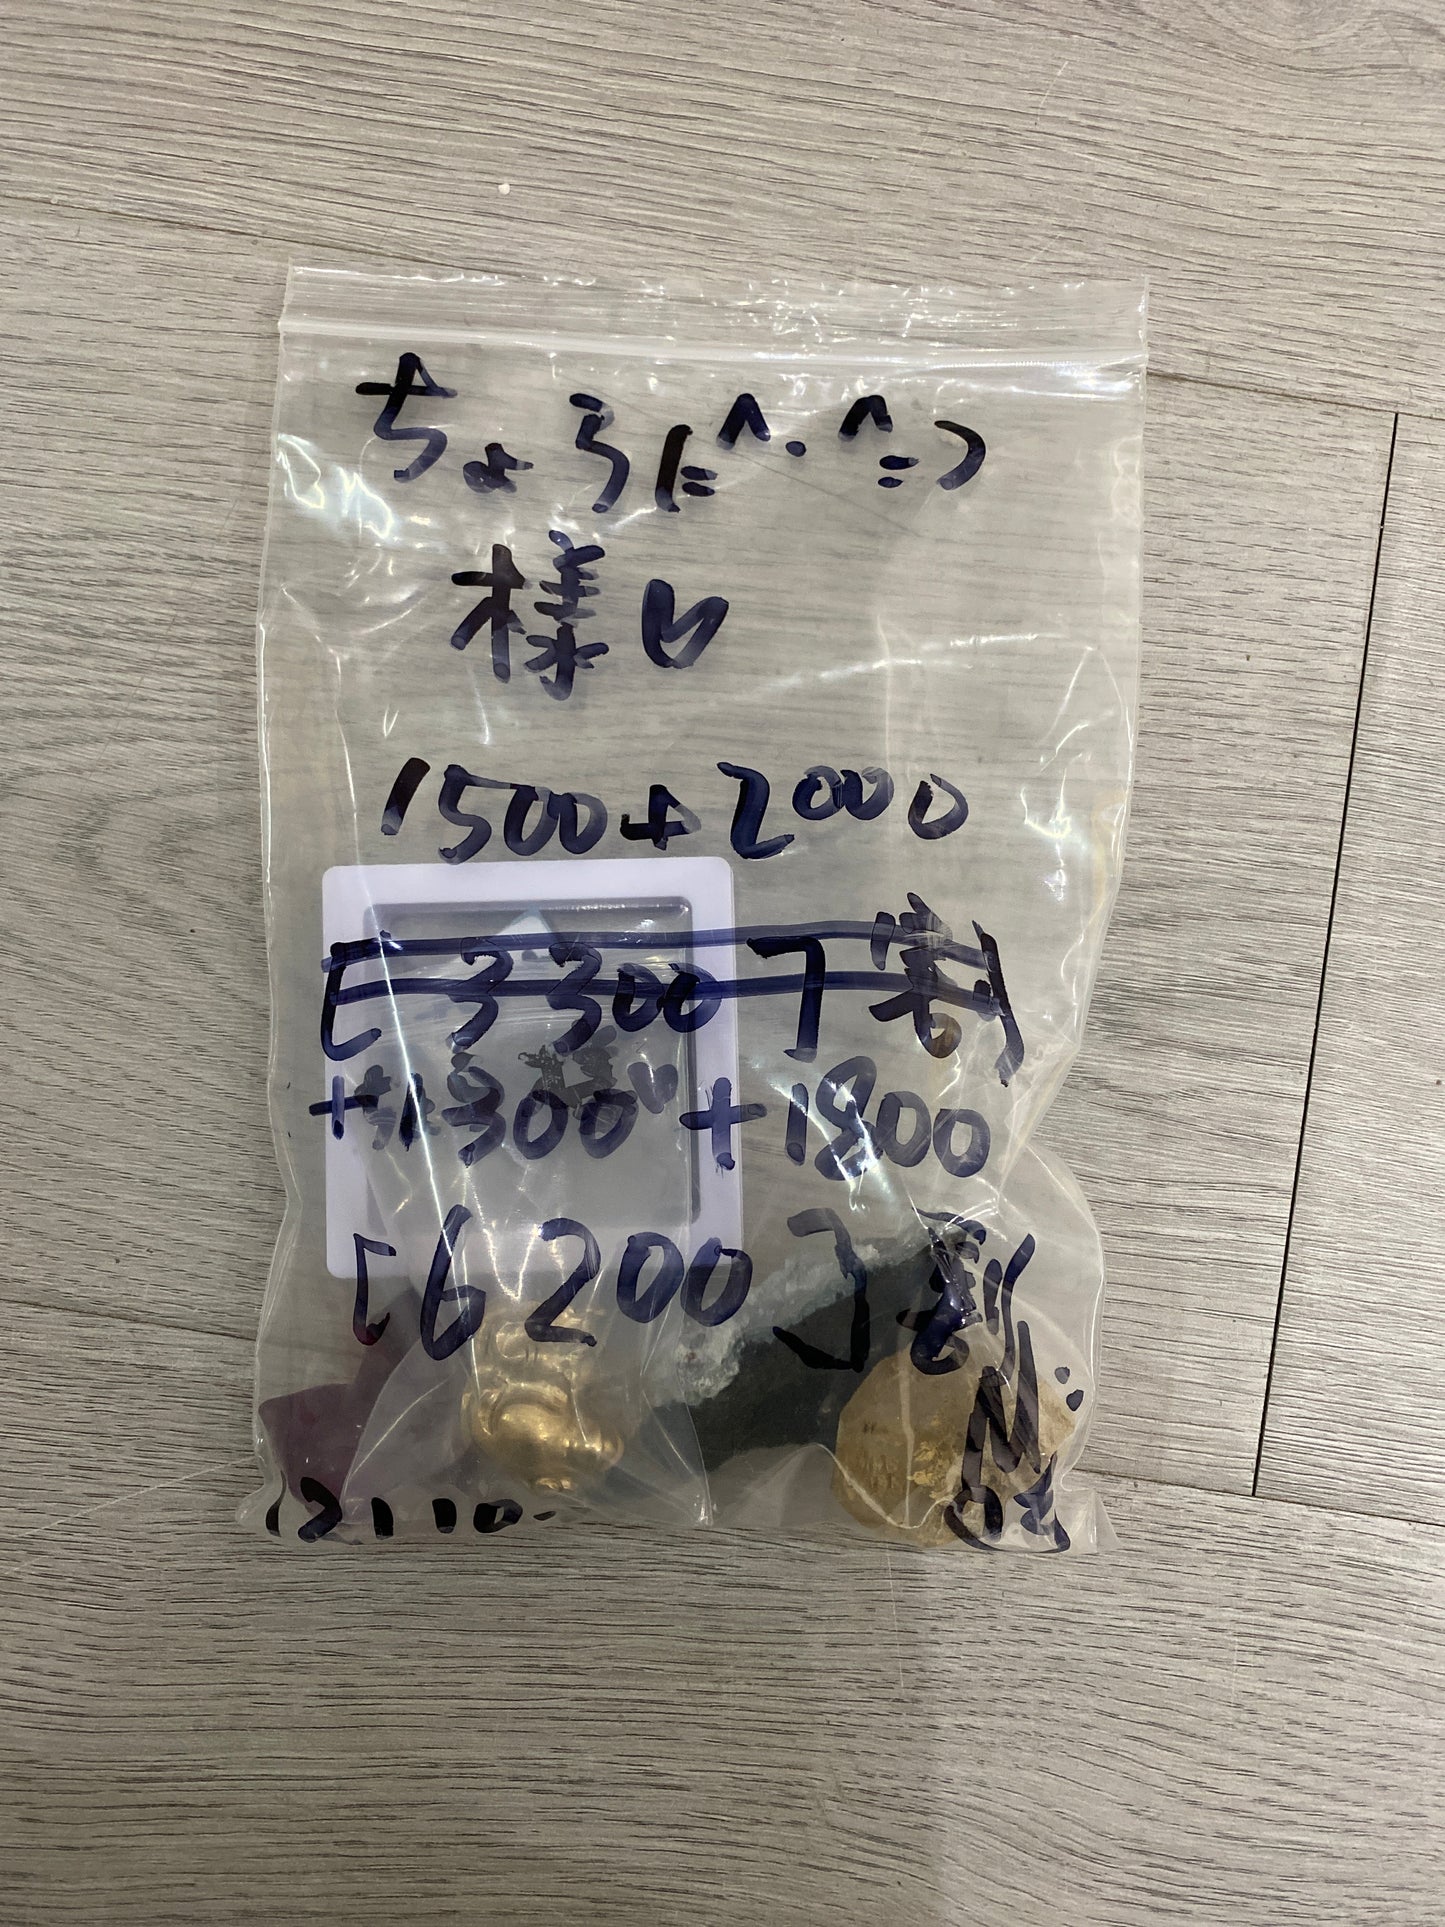 ちょろ(=^・^=)
様♡
1500+2000
[3300]割
+1300+1800
[6200]割